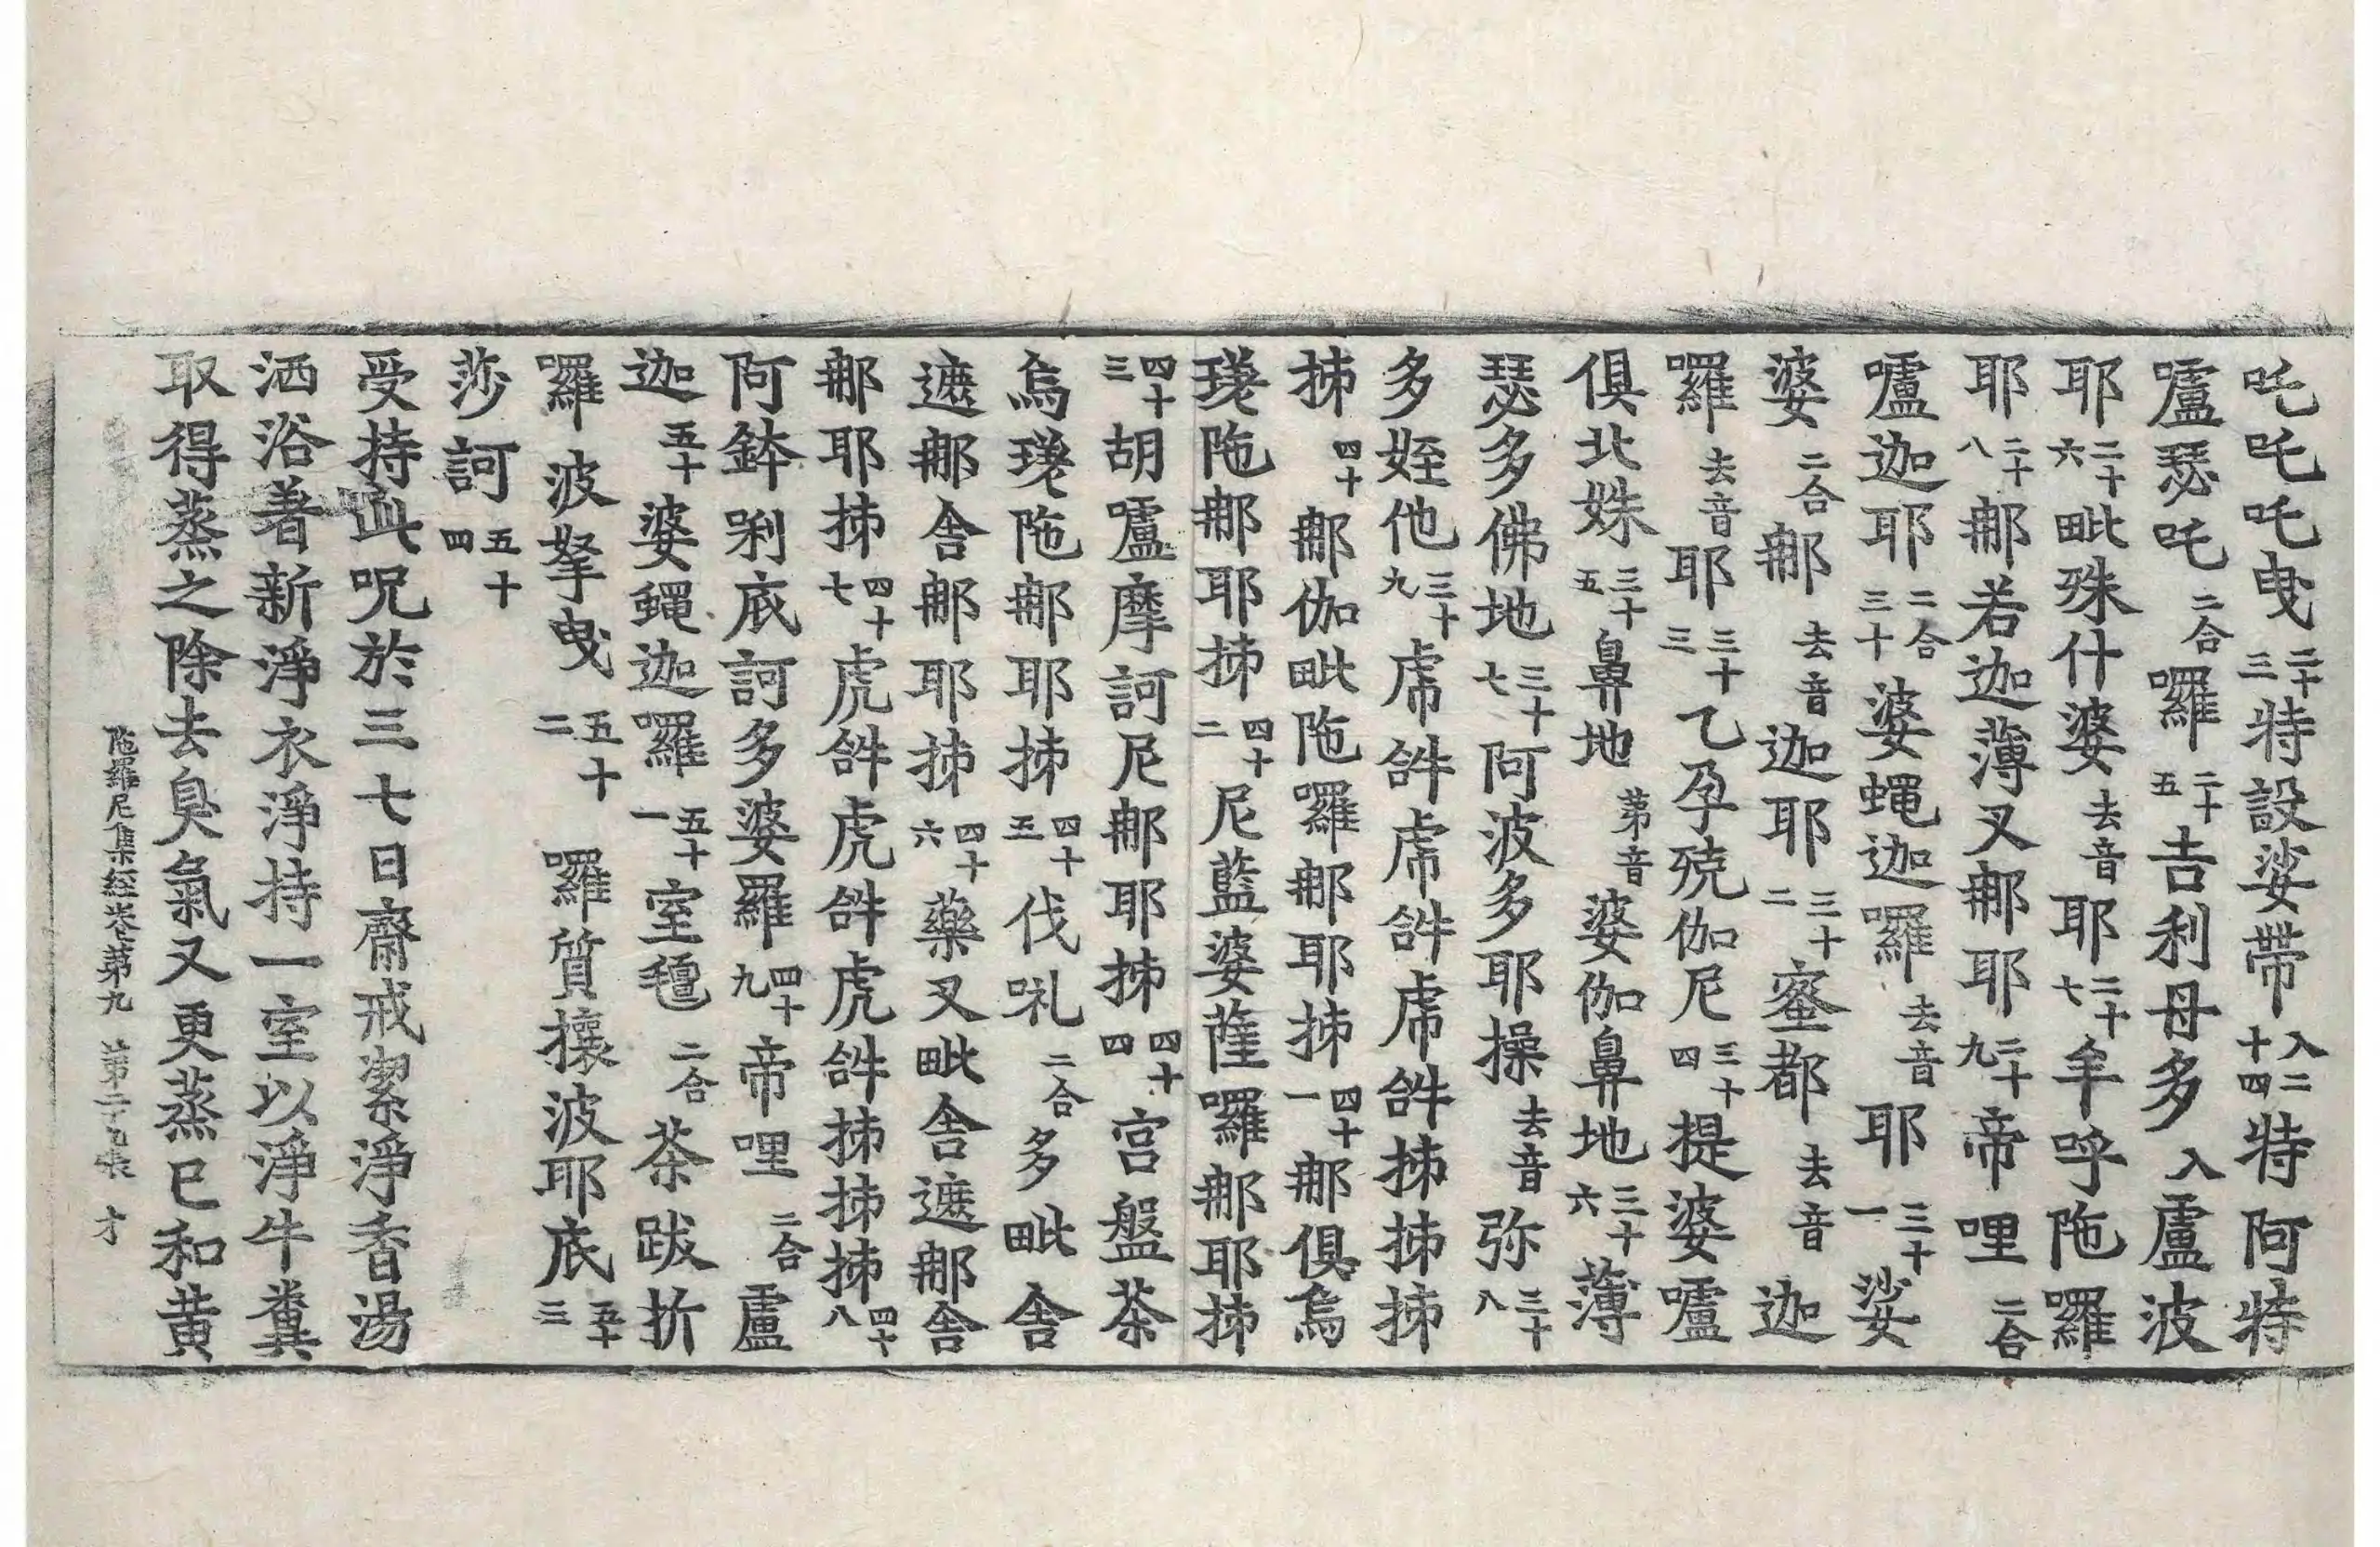 吒吒吒曳二十三特設娑帶入二十四特阿特
嚧瑟吒二合囉二十五吉利母多入盧波
耶二十六毗殊什婆去音耶二十七羊呼陁囉
耶二十八那若迦薄叉那耶二十九帝哩二合
嚧迦耶二合三十婆蠅迦囉去音耶三十一娑
婆二合那去音迦耶三十二蜜都去音迦
囉去音耶三十三乙孕殑伽尼三十四提婆嚧
俱北姝三十五鼻地第音婆伽鼻地三十六薄
瑟多佛地三十七阿波多耶操去音弥三十八
多姪他三十九虏𤙖虏𤙖虏𤙖抪抪抪
抪四十那伽毗陁囉那耶抪四十一那俱烏
瑳陁那耶抪四十二尼藍婆薩囉那耶抪
四十三胡嚧摩訶尼那耶抪四十四宮盤茶
烏瑳陁那耶抪四十五伐𠺁二合多毗舍
遮那舍那耶抪四十六藥叉毗舍遮那舍
那耶抪四十七虎𤙖虎𤙖虎𤙖抪抪抪四十八
阿鉢唎底訶多婆羅四十九帝哩二合盧
迦五十婆蠅迦囉五十一室氈二合茶跋折
囉波拏曳五十二囉質攘波耶底五十三
莎訶五十四
受持此呪於三七日齋戒潔淨香湯
洒浴著新淨衣淨持一室以淨牛糞
取得蒸之除去臭氣又更蒸已和黄
陁羅尼集經卷第九 第二十九張 才